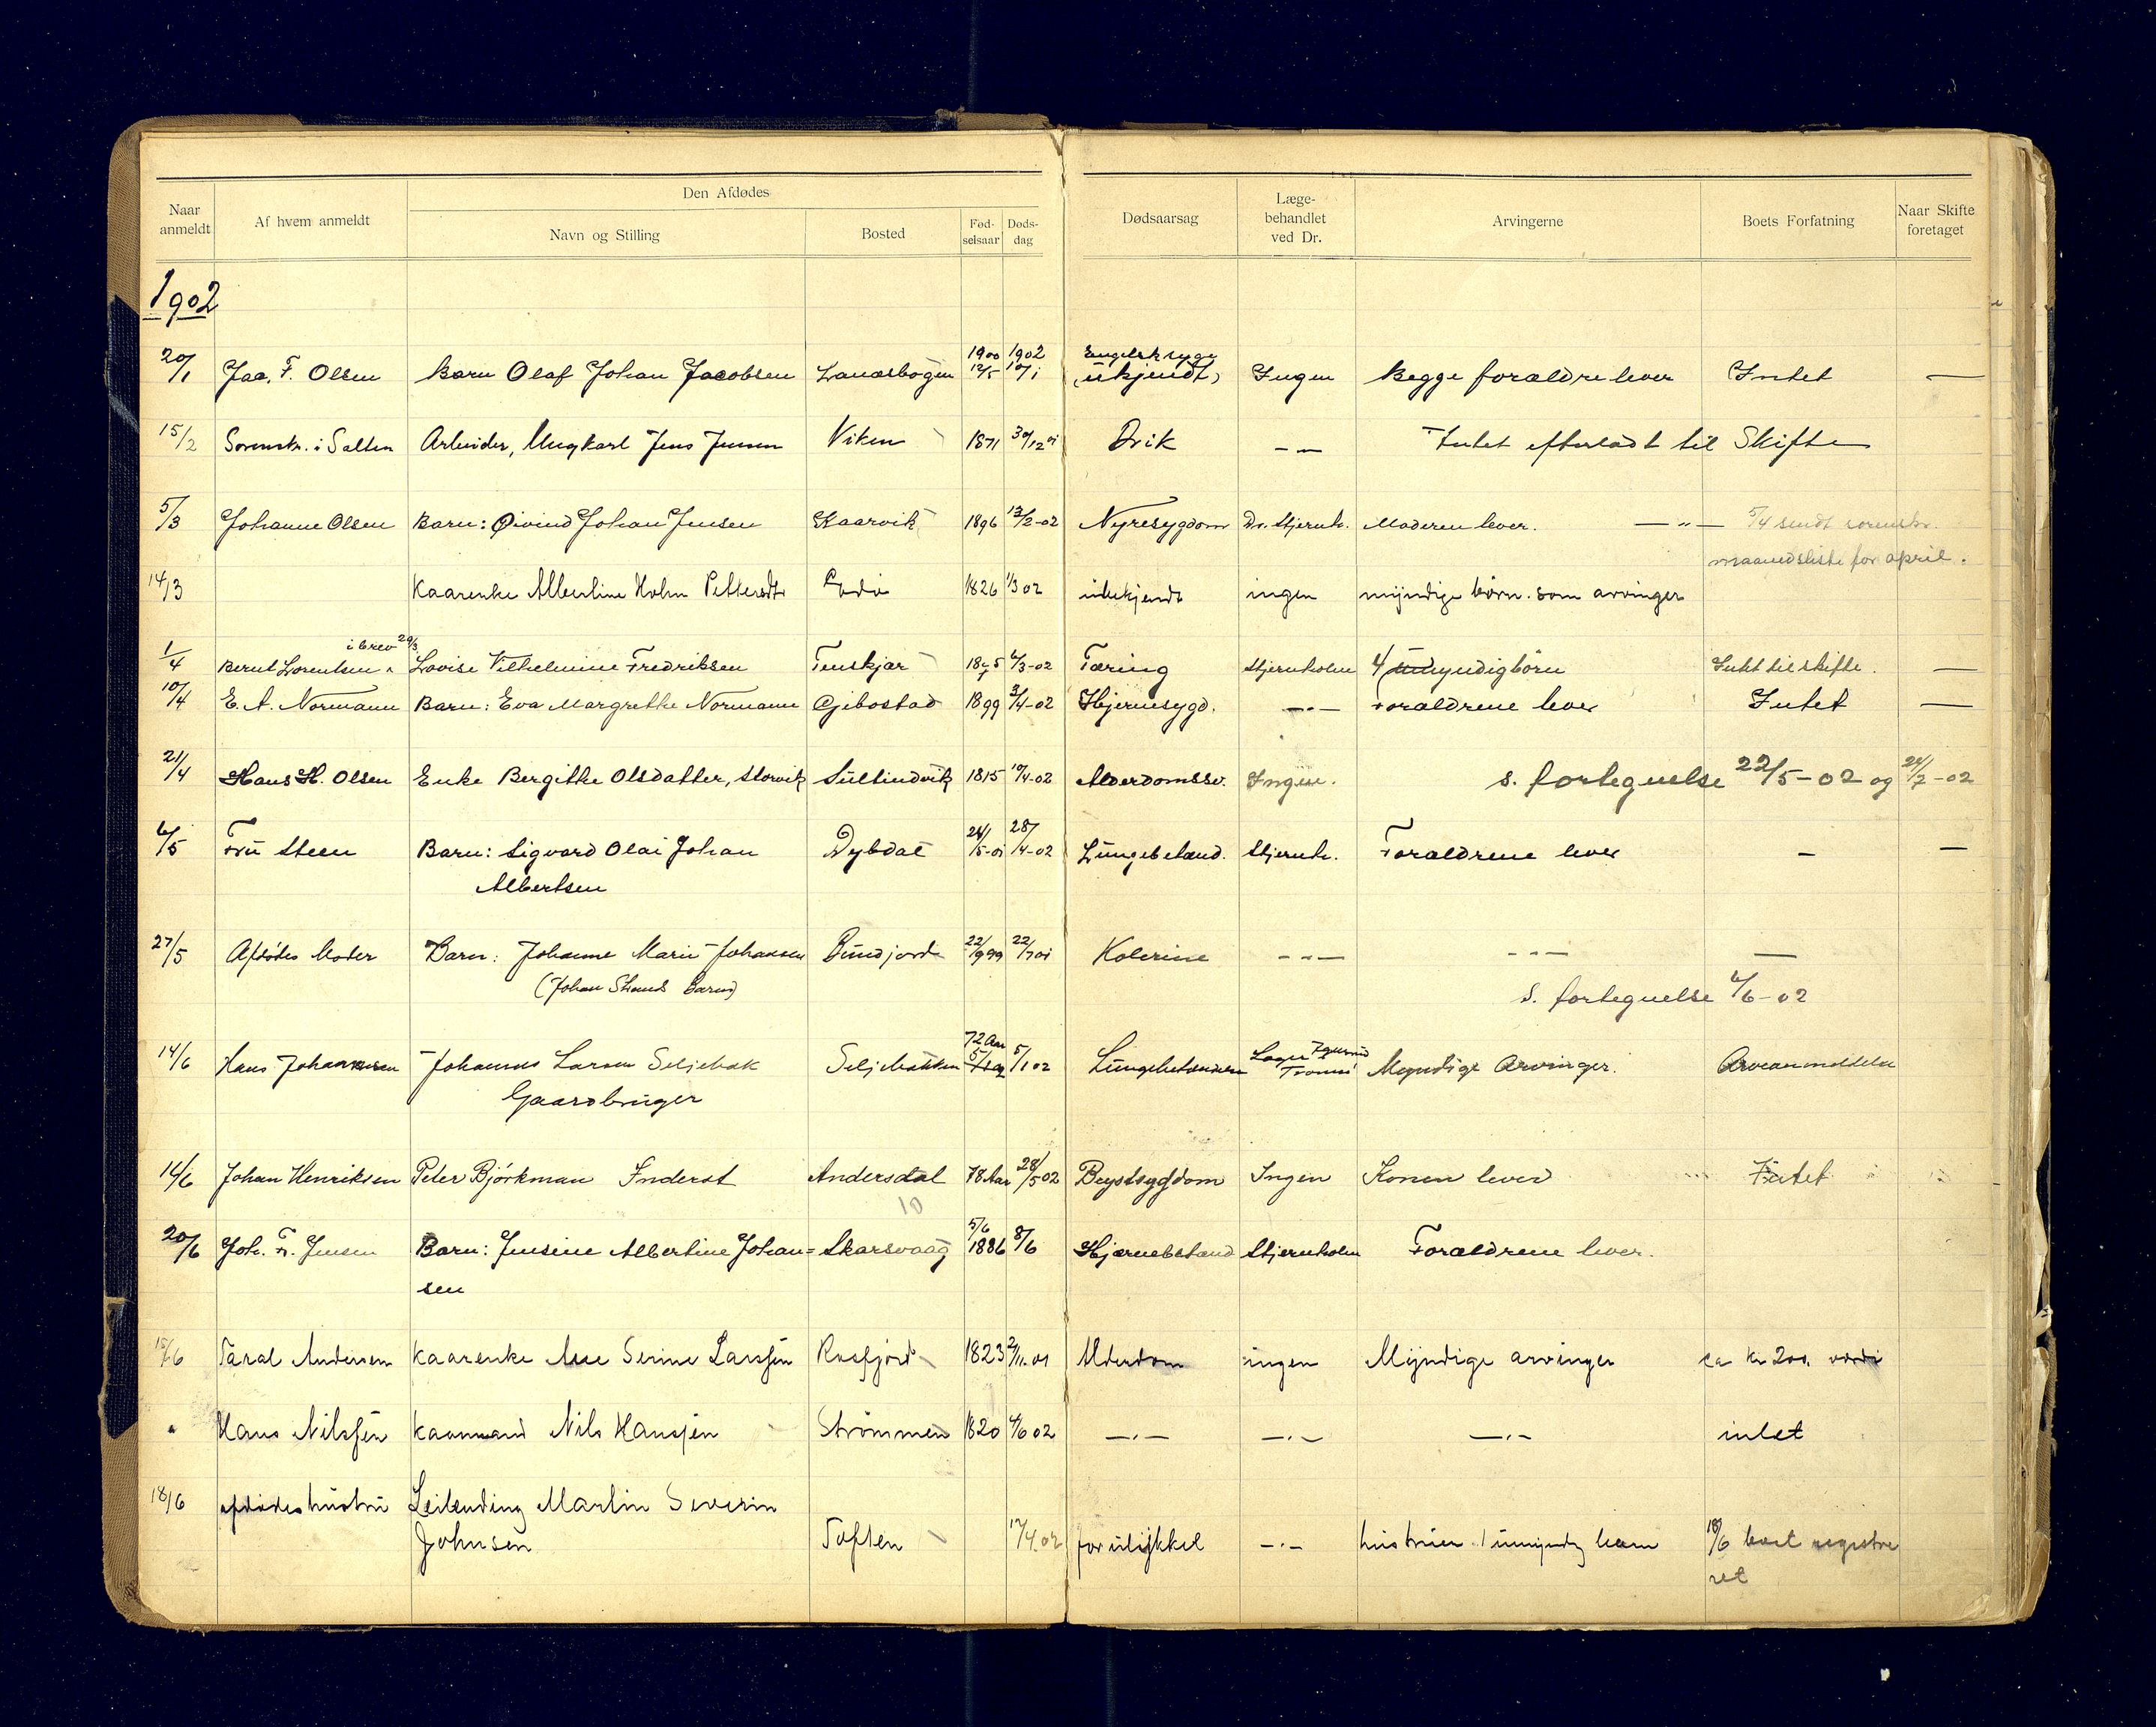 Naar anmeldt
Af hvem anmeldt
Den Afdødes
Navn og Stilling
Bosted
Fød-selsaar
Døds-dag
Dødsaarsag
Læge-behandlet ved Dr.
Arvingerne
Boets Forfatning
Naar Skifte foretaget
1902
1900 1902 Engelsk syge
20/1 Jac. F. Olsen Barn Olaf Johan Jacobsen Lanæsbogen 12/5 10/1 (ukjendt) Ingen Begge forældre lever Intet —
15/2 Sorenskr. i Salten Arbeider, Ungkarl Jens Jensen Viken 1871 30/12 01 Drik — — Intet efterladt til Skifte
5/3 Johanne Olsen Barn: Øivind Johan Jensen Kaarvik 1896 13/2-02 Nyresygdom Dr. Stjernh. Moderen lever. —"— 5/4 sendt sorenskr.
maanedsliste for april.
14/3 Kaarenke Albertine Holm Pettersdtr 1826 1/3 02 ubekjendt ingen myndige børn som arvinger
i brev 29/3
1/4 Bernt Lorentsen Lovise Vilhelmine Fredriksen Tenskjær 6/3-02 Tæring Stjernholm 4 umyndig børn Intet til skifte. —
10/4 E. A. Normann Barn: Eva Margrethe Normann Gjibostad 1899 3/4-02 Hjernesygd. —"— Forældrene lever Intet —
21/4 Hans H. Olsen Enke Bergitte Olsdatter, Storvik Sultindvik 1815 10/4-02 Alderdomssv. Ingen. s. fortegnelse 22/5-02 og 24/7-02
6/5 Fru Steen Barn: Sigvard Olai Johan Dybdal 24/5-01 28/4-02 Lungebetænd. Stjernh. Forældrene lever — —
Albertsen
27/5 Afdødes Moder Barn: Johanne Marie Johansen Bundjord 22/9 99 22/7 01 Kolerine — — — — — — —
(Johan Strands Barn)
s. fortegnelse 6/6-02
72 Aar
14/6 Hans Johannesen Johannes Larsen Seljebak Seljebakken 5/1 02 Lungebetændelse Tromsø Myndige Arvinger. Arveanmeldelse
Gaardbruger
14/6 Johan Henriksen Peter Bjørkman Inderst Andersdal 78 Aar 28/5 02 Brystsygdom Ingen Konen lever Intet
10
5/6
20/6 Joh. Fr. Jensen Barn: Jensine Albertine Johan= Skarsvaag 1886 8/6 Hjærnebetænd Stjernholm Forældrene lever.
sen
15/6 Taral Andersen Kaarenke Ane Serine Larssen Rosfjord 1823 2/11.01 Alderdom ingen Myndige arvinger ca kr 200, værdi
" Hans Nilssen Kaarmand Nils Hanssen Strømmen 1820 4/6 02 —"— —"— —"— intet
18/6 afdødes hustru Leilending Martin Severin
Johnsen Toften 12/4.02 forulykket —"— hustruen 1 umyndig barn 18/6 boet registre
ret